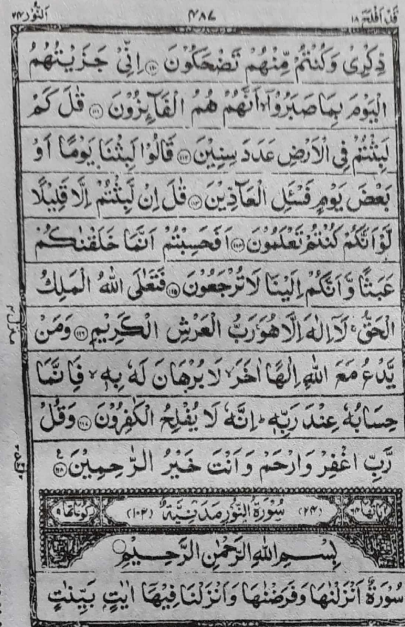 قد افلح ١٨ ٤٨٧ النور ٢٤
ذِكْرِیْ وَكُنْتُمْ مِّنْهُمْ تَضْحَكُوْنَ ﴿۱۱۰﴾ اِنِّیْ جَزَیْتُهُمُ
الْیَوْمَ بِمَا صَبَرُوْۤا اَنَّهُمْ هُمُ الْفَآىِٕزُوْنَ ﴿۱۱۱﴾ قٰلَ كَمْ
لَبِثْتُمْ فِی الْاَرْضِ عَدَدَ سِنِیْنَ ﴿۱۱۲﴾ قَالُوْا لَبِثْنَا یَوْمًا اَوْ
بَعْضَ یَوْمٍ فَسْـَٔلِ الْعَآدِّیْنَ ﴿۱۱۳﴾ قٰلَ اِنْ لَّبِثْتُمْ اِلَّا قَلِیْلًا
لَّوْ اَنَّكُمْ كُنْتُمْ تَعْلَمُوْنَ ﴿۱۱۴﴾ اَفَحَسِبْتُمْ اَنَّمَا خَلَقْنٰكُمْ
عَبَثًا وَّاَنَّكُمْ اِلَیْنَا لَا تُرْجَعُوْنَ ﴿۱۱۵﴾ فَتَعٰلَی اللّٰهُ الْمَلِكُ
الْحَقُّ ۚ لَاۤ اِلٰهَ اِلَّا هُوَ ۚ رَبُّ الْعَرْشِ الْكَرِیْمِ ﴿۱۱۶﴾ وَمَنْ
یَّدْعُ مَعَ اللّٰهِ اِلٰهًا اٰخَرَ ۙ لَا بُرْهَانَ لَهٗ بِهٖ ۙ فَاِنَّمَا
حِسَابُهٗ عِنْدَ رَبِّهٖ ؕ اِنَّهٗ لَا یُفْلِحُ الْكٰفِرُوْنَ ﴿۱۱۷﴾ وَقُلْ
رَّبِّ اغْفِرْ وَارْحَمْ وَاَنْتَ خَیْرُ الرّٰحِمِیْنَ ﴿۱۱۸﴾
(۲۴) سُوْرَةُ النُّوْرِ مَدَنِیَّةٌ (۱۰۲)
بِسْمِ اللّٰهِ الرَّحْمٰنِ الرَّحِیْمِ
سُوْرَةٌ اَنْزَلْنٰهَا وَفَرَضْنٰهَا وَاَنْزَلْنَا فِیْهَاۤ اٰیٰتٍۭ بَیِّنٰتٍ